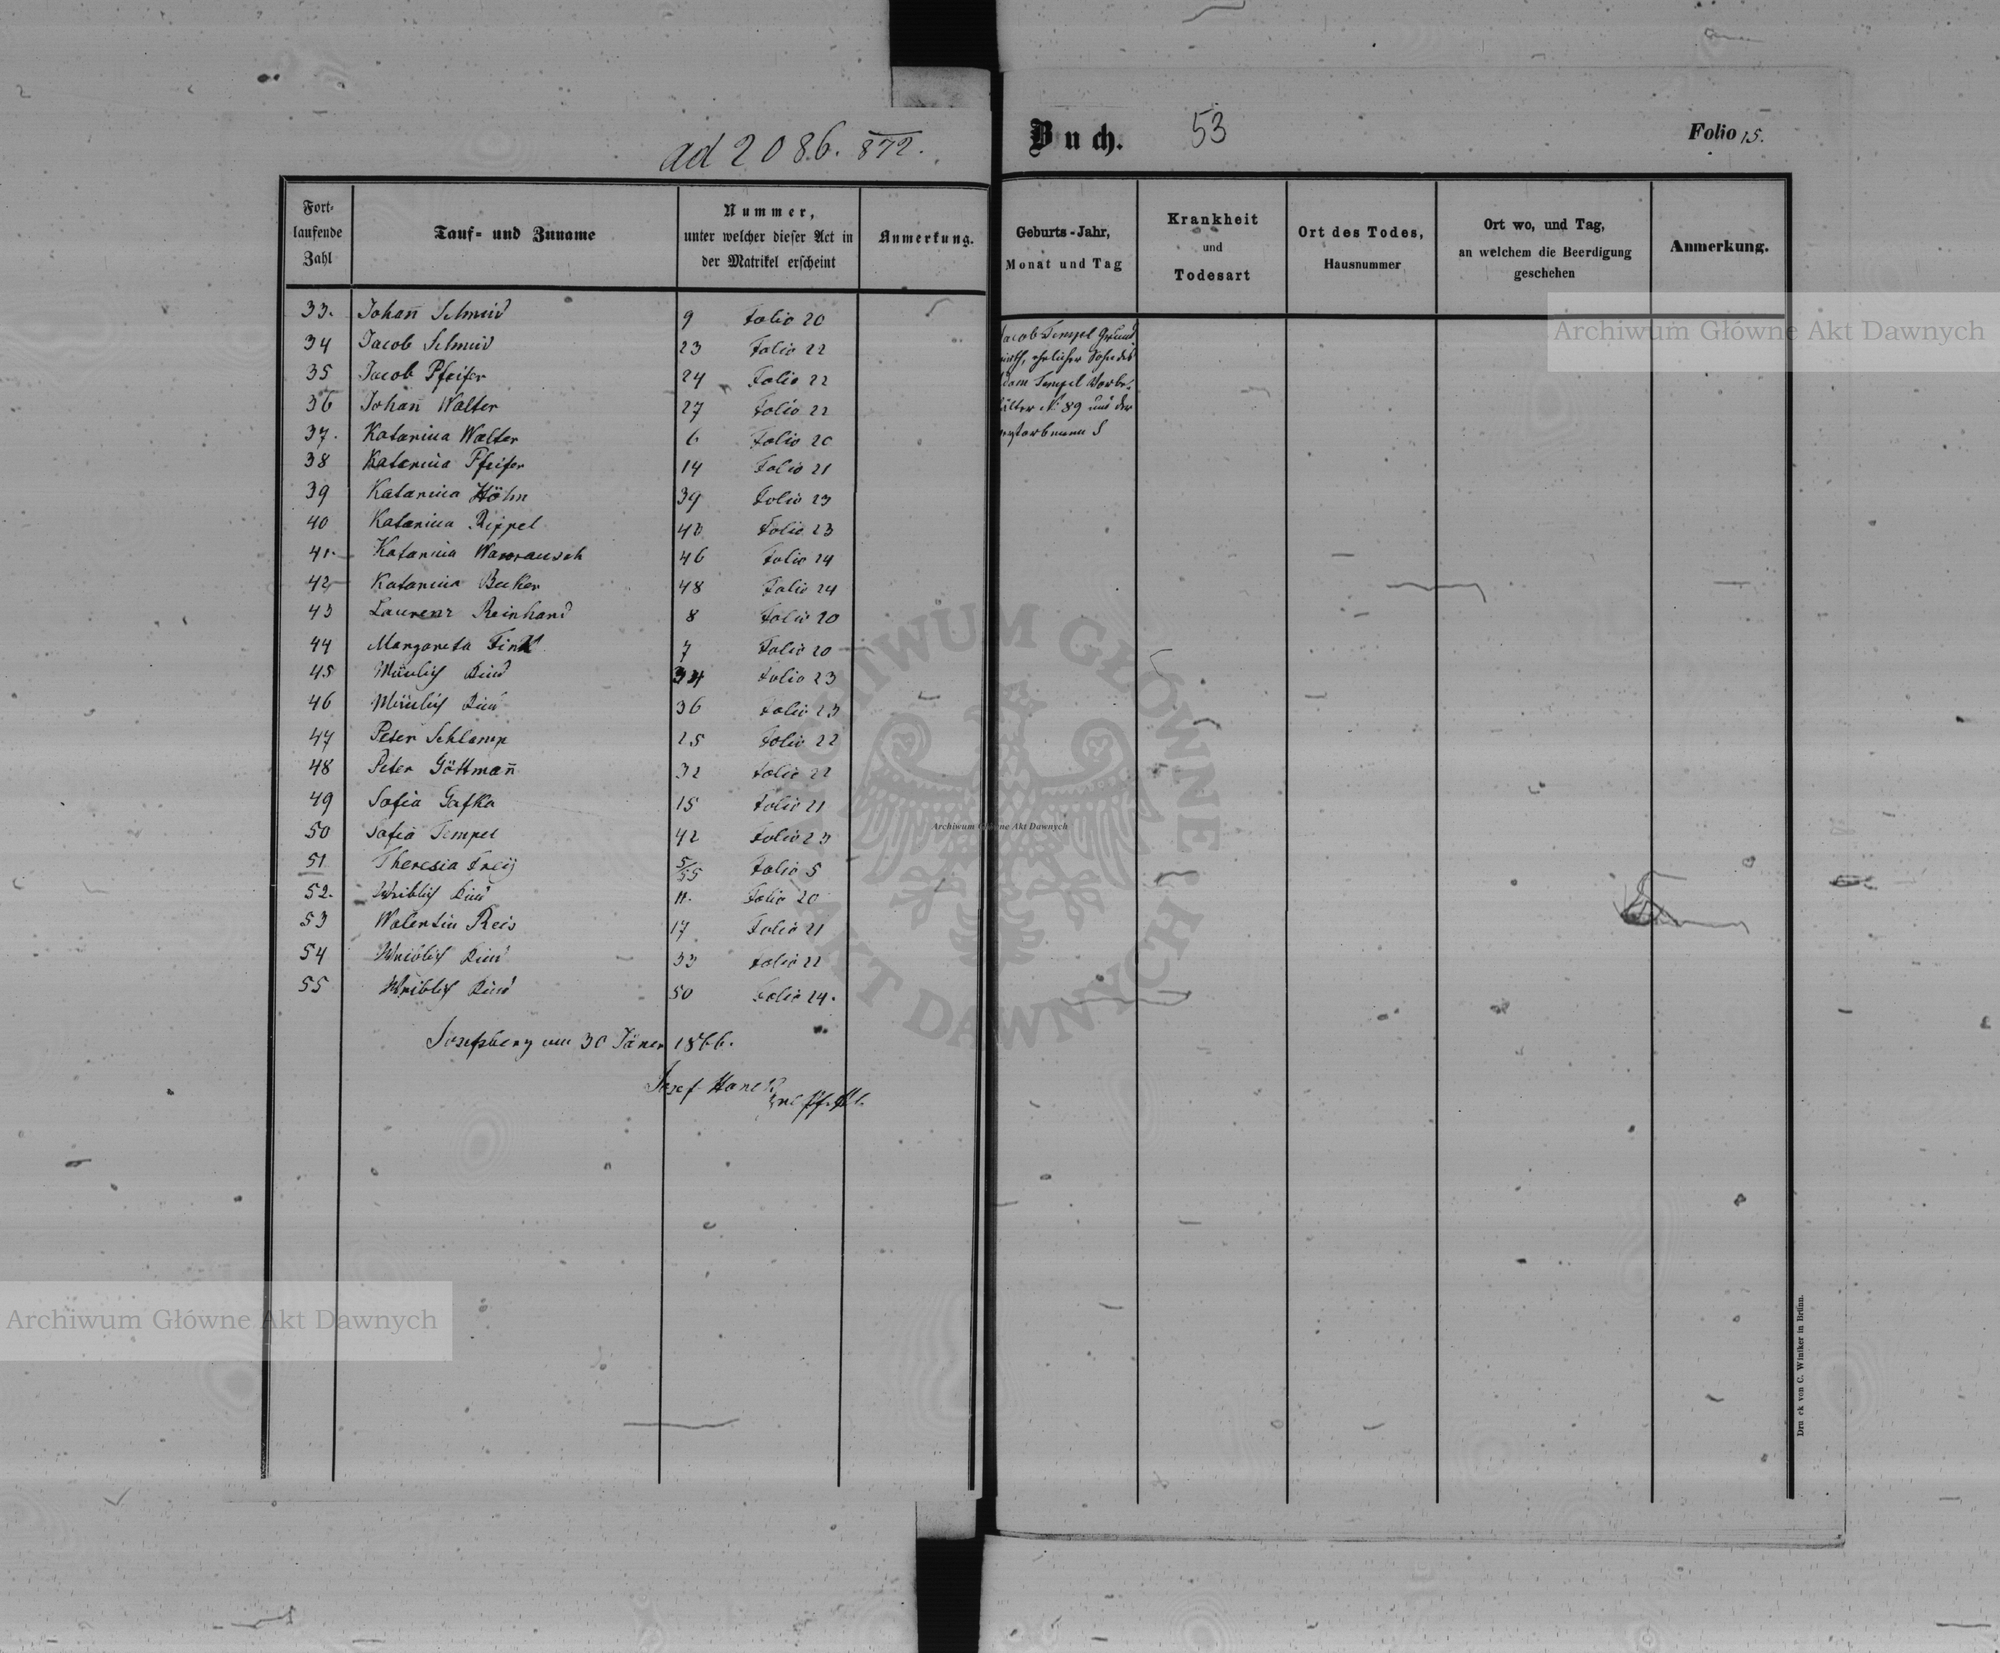 ad 2086. 872.
Fort-
laufende
Zahl
Tauf- und Zuname
Nummer,
unter welcher dieser Act in
der Matrikel erscheint
Anmerkung.
33. Johañ Schmid 9 Folio 20
34 Jacob Schmid 23 Folio 22
35 Jacob Pfeifer 24 Folio 22
36 Johañ Walter 27 Folio 22
37. Katarina Walter 6 Folio 20
38 Katarina Pfeifer 14 Folio 21
39 Katarina Höhn 39 Folio 23
40 Katarina Rippel 40 Folio 23
41. Katarina 46 Folio 24
42 Katarina Beker 48 Folio 24
43 Laurenz Reinhard 8 Folio 20
44 Margareta Fink 7 Folio 20
45 Mänlich Kind 34 Folio 23
46 Mänlich Kind 36 Folio 23
47 Peter Schlamp 25 Folio 22
48 Peter Göttmañ 32 Folio 22
49 Sofia Gafka 15 Folio 21
50 Sofia Tempel 42 Folio 23
51 Theresia Frey 5/55 Folio 5
52. Weiblich Kind 11. Folio 20
53 Walentin Reis 17 Folio 21
54 Weiblich Kind 33 Folio 22
55 Weiblich Kind 50 Folio 24.
Josefsberg am 30 Jäner 1866.
Josef Hanek
Buch.
53
Folio 15.
Geburts-Jahr,
Monat und Tag
Krankheit
und
Todesart
Ort des Todes,
Hausnummer
Ort wo, und Tag,
an welchem die Beerdigung
geschehen
Anmerkung.
Jacob Tempel Grund
wirth, ehelicher Sohn des
Adam Tempel Vorbe-
hälter N. 89 und der
verstorbenen S
Druck von C. Winiker in Brünn.
Archiwum Główne Akt Dawnych
Archiwum Główne Akt Dawnych
Archiwum Główne Akt Dawnych
ARCHIWUM GŁÓWNE AKT DAWNYCH